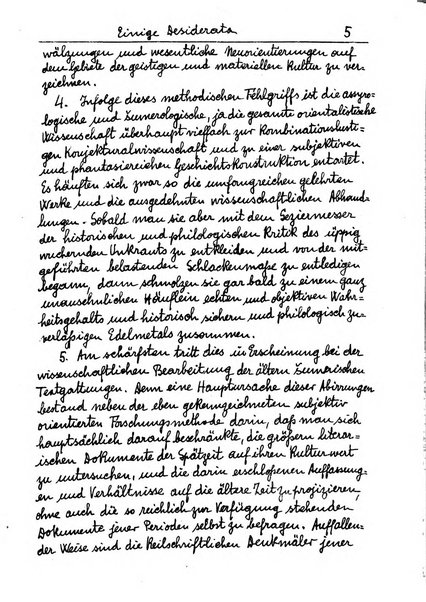 Einige Desiderata 5
wälzungen und wesentliche Neuorientierungen auf
dem Gebiete der geistigen und materiellen Kultur zu ver-
zeichnen.
4. Infolge dieses methodischen Fehlgriffs ist die assyro-
logische und sumerologische, ja die gesamte orientalistische
Wissenschaft überhaupt vielfach zur Kombinationslusti-
gen Konjekturalwissenschaft und zu einer subjektiven
und phantasiereichen Geschichtskonstruktion entartet.
Es häuften sich zwar so die umfangreichen gelehrten
Werke und die ausgedehnten wissenschaftlichen Abhand-
lungen. Sobald man sie aber mit dem Seziermesser
der historischen und philologischen Kritik des üppig
wuchernden Unkrauts zu entkleiden und von der mit-
geführten belastenden Schlackenmaße zu entledigen
begann, dann schmolzen sie gar bald zu einem ganz
unansehnlichen Häuflein echten und objektiven Wahr-
heitsgehalts und historisch sichern und philologisch zu-
verläßigen Edelmetals zusammen.
5. Am schärfsten tritt dies in Erscheinung bei der
wissenschaftlichen Bearbeitung der ältern sumerischen
Textgattungen. Denn eine Hauptursache dieser Abirrungen
bestand neben der eben gekennzeichneten subjektiv
orientierten Forschungsmethode darin, daß man sich
hauptsächlich darauf beschränkte, die größern literar-
ischen Dokumente der Spätzeit auf ihren Kulturwert
zu untersuchen, und die darin erschloßenen Auffassung-
en und Verhältnisse auf die ältere Zeit zu projizieren,
ohne auch die so reichlich zur Verfügung stehenden
Dokumente jener Perioden selbst zu befragen. Auffallen-
der Weise sind die Keilschriftlichen Denkmäler jener